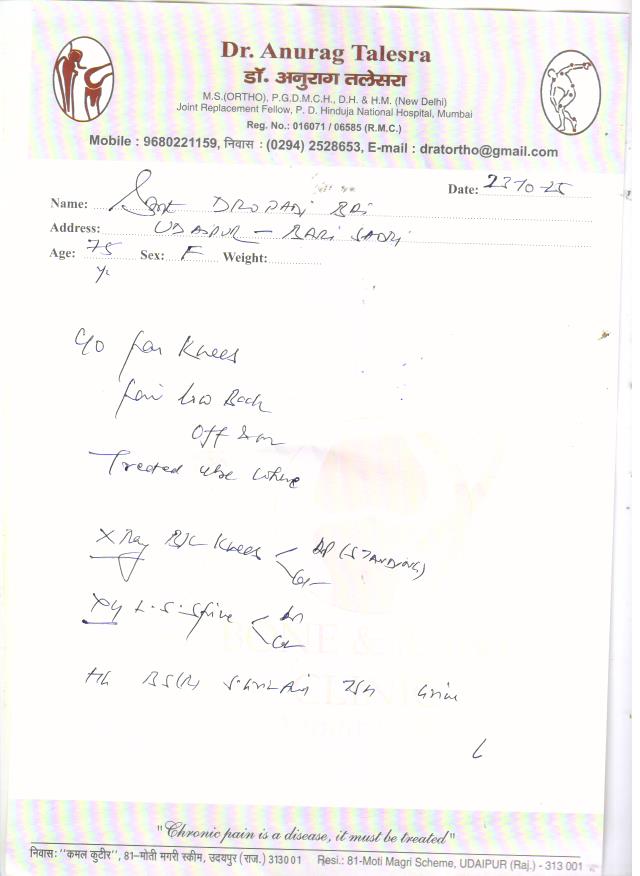 Dr. Anurag Talesra
डॉ. अनुराग तलेसरा
M.S.(ORTHO), P.G.D.M.C.H., D.H. & H.M. (New Delhi)
Joint Replacement Fellow, P. D. Hinduja National Hospital, Mumbai
Reg. No.: 016071 / 06585 (R.M.C.)
Mobile : 9680221159, निवास : (0294) 2528653, E-mail : dratortho@gmail.com
Date: 23 10 25
Name: Smt DROPADI BAI
Address: UDAIPUR - BARI SADRI
Age: 75 yr Sex: F Weight:
C/o Pain Knees
Pain Low Back
Off & on
Treated else where
X Ray B/L Knees AP (STANDING)
Lat
XR L.S. Spine AP
Lat
BONE &
CLINIC
Hb
"Chronic pain is a disease, it must be treated"
निवासः "कमल कुटीर", 81-मोती मगरी स्कीम, उदयपुर (राज.) 313001 Resi.: 81-Moti Magri Scheme, UDAIPUR (Raj.) - 313 001